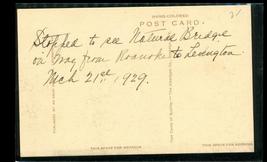 HAND-COLORED
POST CARD
Stopped to see Natural Bridge
on way from Roanoke to Lexington
Mch 21st, 1929.
THIS SPACE FOR WRITING
THIS SPACE FOR ADDRESS